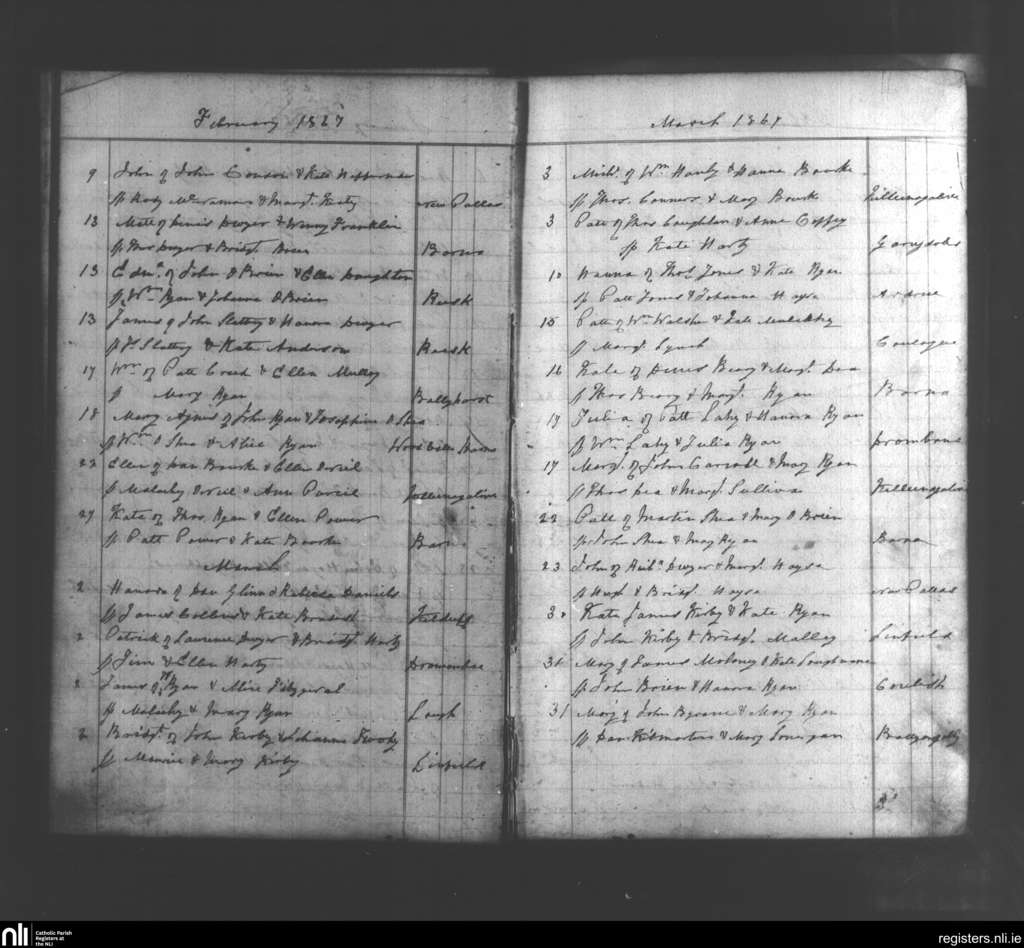 February 1867
9 John of John Connor & Kate Heffernan
sp Kody & Margt. Karty new Pallas
13 Matt of Dinis Dwyer & Winny Franklin
sp Thos Dwyer & Bridgt Brien Barna
13 Edmd. of John O Brien & Ellen Naughton
sp Wm Ryan & Johanna O Brien Reask
13 James of John Slattery & Hanora Dwyer
sp Slattery & Kate Anderson Reask
17 Wm of Patt Creed & Ellen Mulloy
sp Mary Ryan Ballyhurst
18 Mary Agnes of John Ryan & Josephine O Shea
sp Wm O Shea & Alice Ryan
22 Ellen of Dan Bourke & Ellen
sp Malachy & Ann Purcil Killenagalive
27 Kate of Thos. Ryan & Ellen Power
sp Patt Power & Kate Bourke Barna
March
2 Hanora of Dan Glinn & Rebecca Daniels
sp James Collins & Kate Kilduff
2 Patrick of Laurence Dwyer & Bridgt. Harty
sp Jim & Ellen Harty
2 James of Wm Ryan & Alice Fitzgerald
sp Malachy & Mary Ryan Lough
2 Bridgt. of John Kirby & Johanna
sp & Mary Kirby Linfield
March 1867
3 Michl. of Wm Hanly & Hanna Bourke
sp Thos. Connors & Mary Bourk Killenagalive
3 Patt of Thos Coughlan & Anne Coffey
sp Kate Harty
10 Hanna of Thos Jones & Kate Ryan
sp Patt Jones & Johanna Hayes
15 Patt of Wm Walshe & Kate Mulcahy
sp Margt. Lynch Coologue
16 Kate of Dinis Berry & Margt. Dea
sp Thos Berry & Margt. Ryan Barna
17 Julia of Patt Lahy & Hanora Ryan
sp Wm. Lahy & Julia Ryan Drombane
17 Margt. of John Carroll & Mary Ryan
sp Thos Dea & Margt. Sullivan Killenagalive
22 Patt of Martin Shea & Mary O Brien
sp John Shea & Mary Ryan Barna
23 John of Dwyer & Margt. Hayes
sp Hugh & Bridgt. Hayes new Pallas
30 Kate James Kirby & Kate Ryan
sp John Kirby & Bridgt. Malloy Linfield
31 Mary of James Moloney & Kate Loughnane
sp John Brien & Hanora Ryan
31 Mary of John Byrane & Mary Ryan
sp Dan Kilmartin & Mary Lonergan
nli Catholic Parish Registers at the NLI
registers.nli.ie